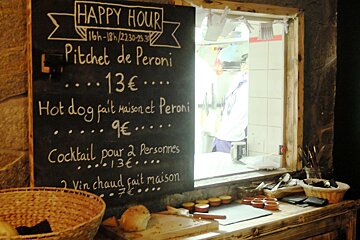 HAPPY HOUR
16h-18h/22.30-23.30
Pitchet de Peroni
13€
Hot dog fait maison et Peroni
9€
Cocktail pour 2 Personnes
13€
2 Vin chaud fait maison
7€